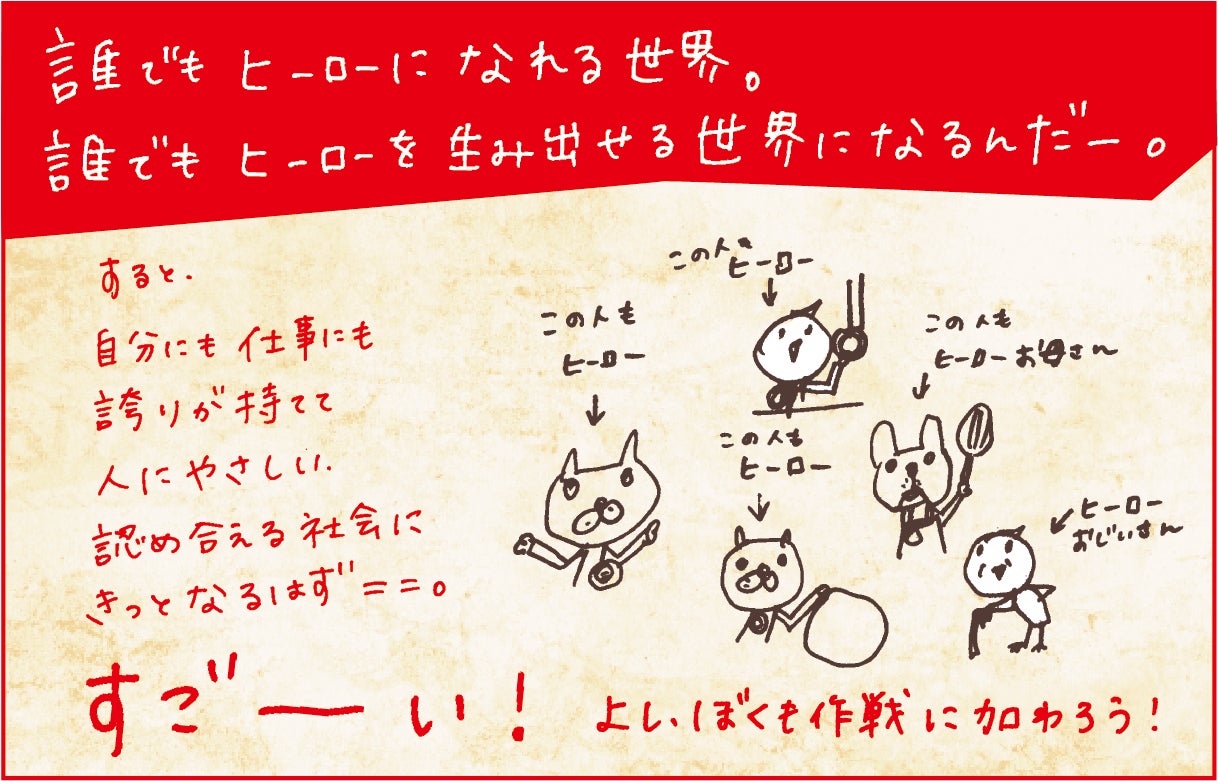 誰でもヒーローになれる世界。
誰でもヒーローを生み出せる世界になるんだー。
すると、
自分にも仕事にも
誇りが持てて
人にやさしい、
認め合える社会に
きっとなるはず゛==。
すご゛ーい!
よし、ぼくも作戦に加わろう!
この人も
ヒーロー
この人も
ヒーロー
この人も
ヒーローお母さん
この人も
ヒーロー
ヒーロー
おじいさん